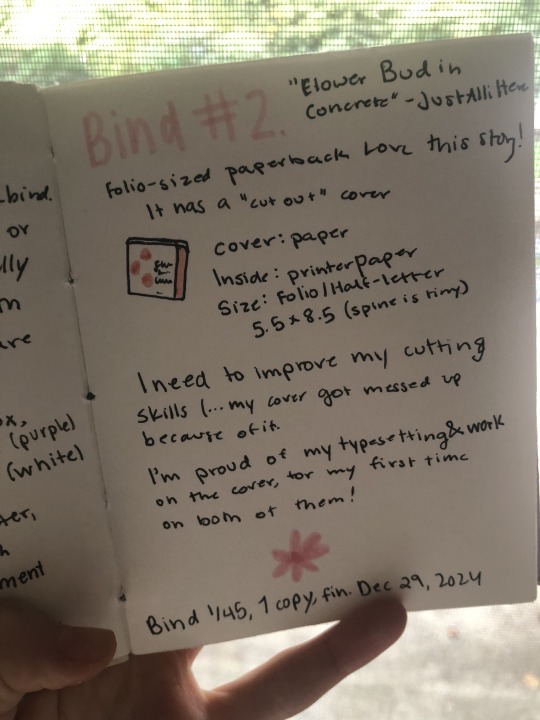 -bind.
or
lly
m
are
ox,
(purple)
(white)
ter,
h
ment
Bind #2.
"Flower Bud in
Concrete" - JustAlliHere
Folio-sized paperback Love this story!
It has a "cut out" cover
cover: paper
Inside: printer paper
Size: Folio/Half-letter
5.5 x 8.5 (spine is tiny)
I need to improve my cutting
skills (... my cover got messed up
because of it.
I'm proud of my typesetting & work
on the cover, for my first time
on both of them!
Bind 1/45, 1 copy, fin. Dec 29, 2024